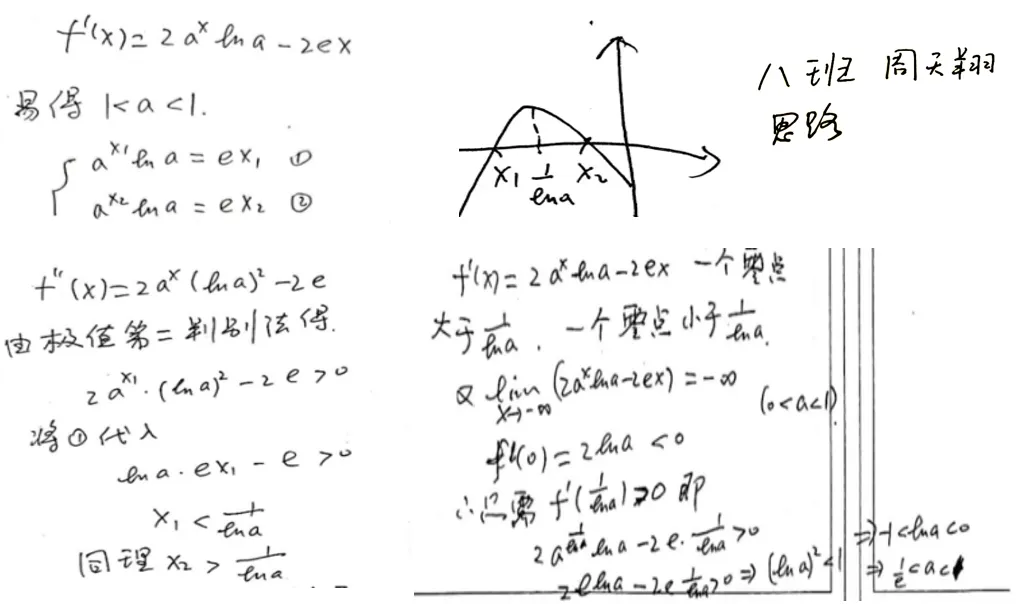 f'(x)=2aˣlna-2ex
易得 1<a<1.
{ aˣ¹lna=ex₁ ①
aˣ²lna=ex₂ ②
f''(x)=2aˣ(lna)²-2e
由极值第二判别法得.
2aˣ¹·(lna)²-2e>0
将①代入
lna·ex₁-e>0
x₁<1/lna
同理 x₂>1/lna
x₁ 1/lna x₂
八班 周天翔
思路
f'(x)=2aˣlna-2ex 一个零点
大于1/lna. 一个零点小于1/lna.
又 lim x→-∞ (2aˣlna-2ex)=-∞ (0<a<1)
f'(0)=2lna<0
∴只需 f'(1/lna)>0 即
2a^(1/lna)lna-2e·1/lna>0
2elna-2e1/lna>0⇒(lna)²<1
⇒-1<lna<0
⇒1/e<a<1